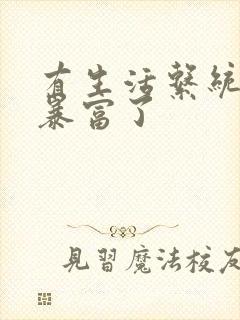 有生活繫統
暴富了
見習魔法校友